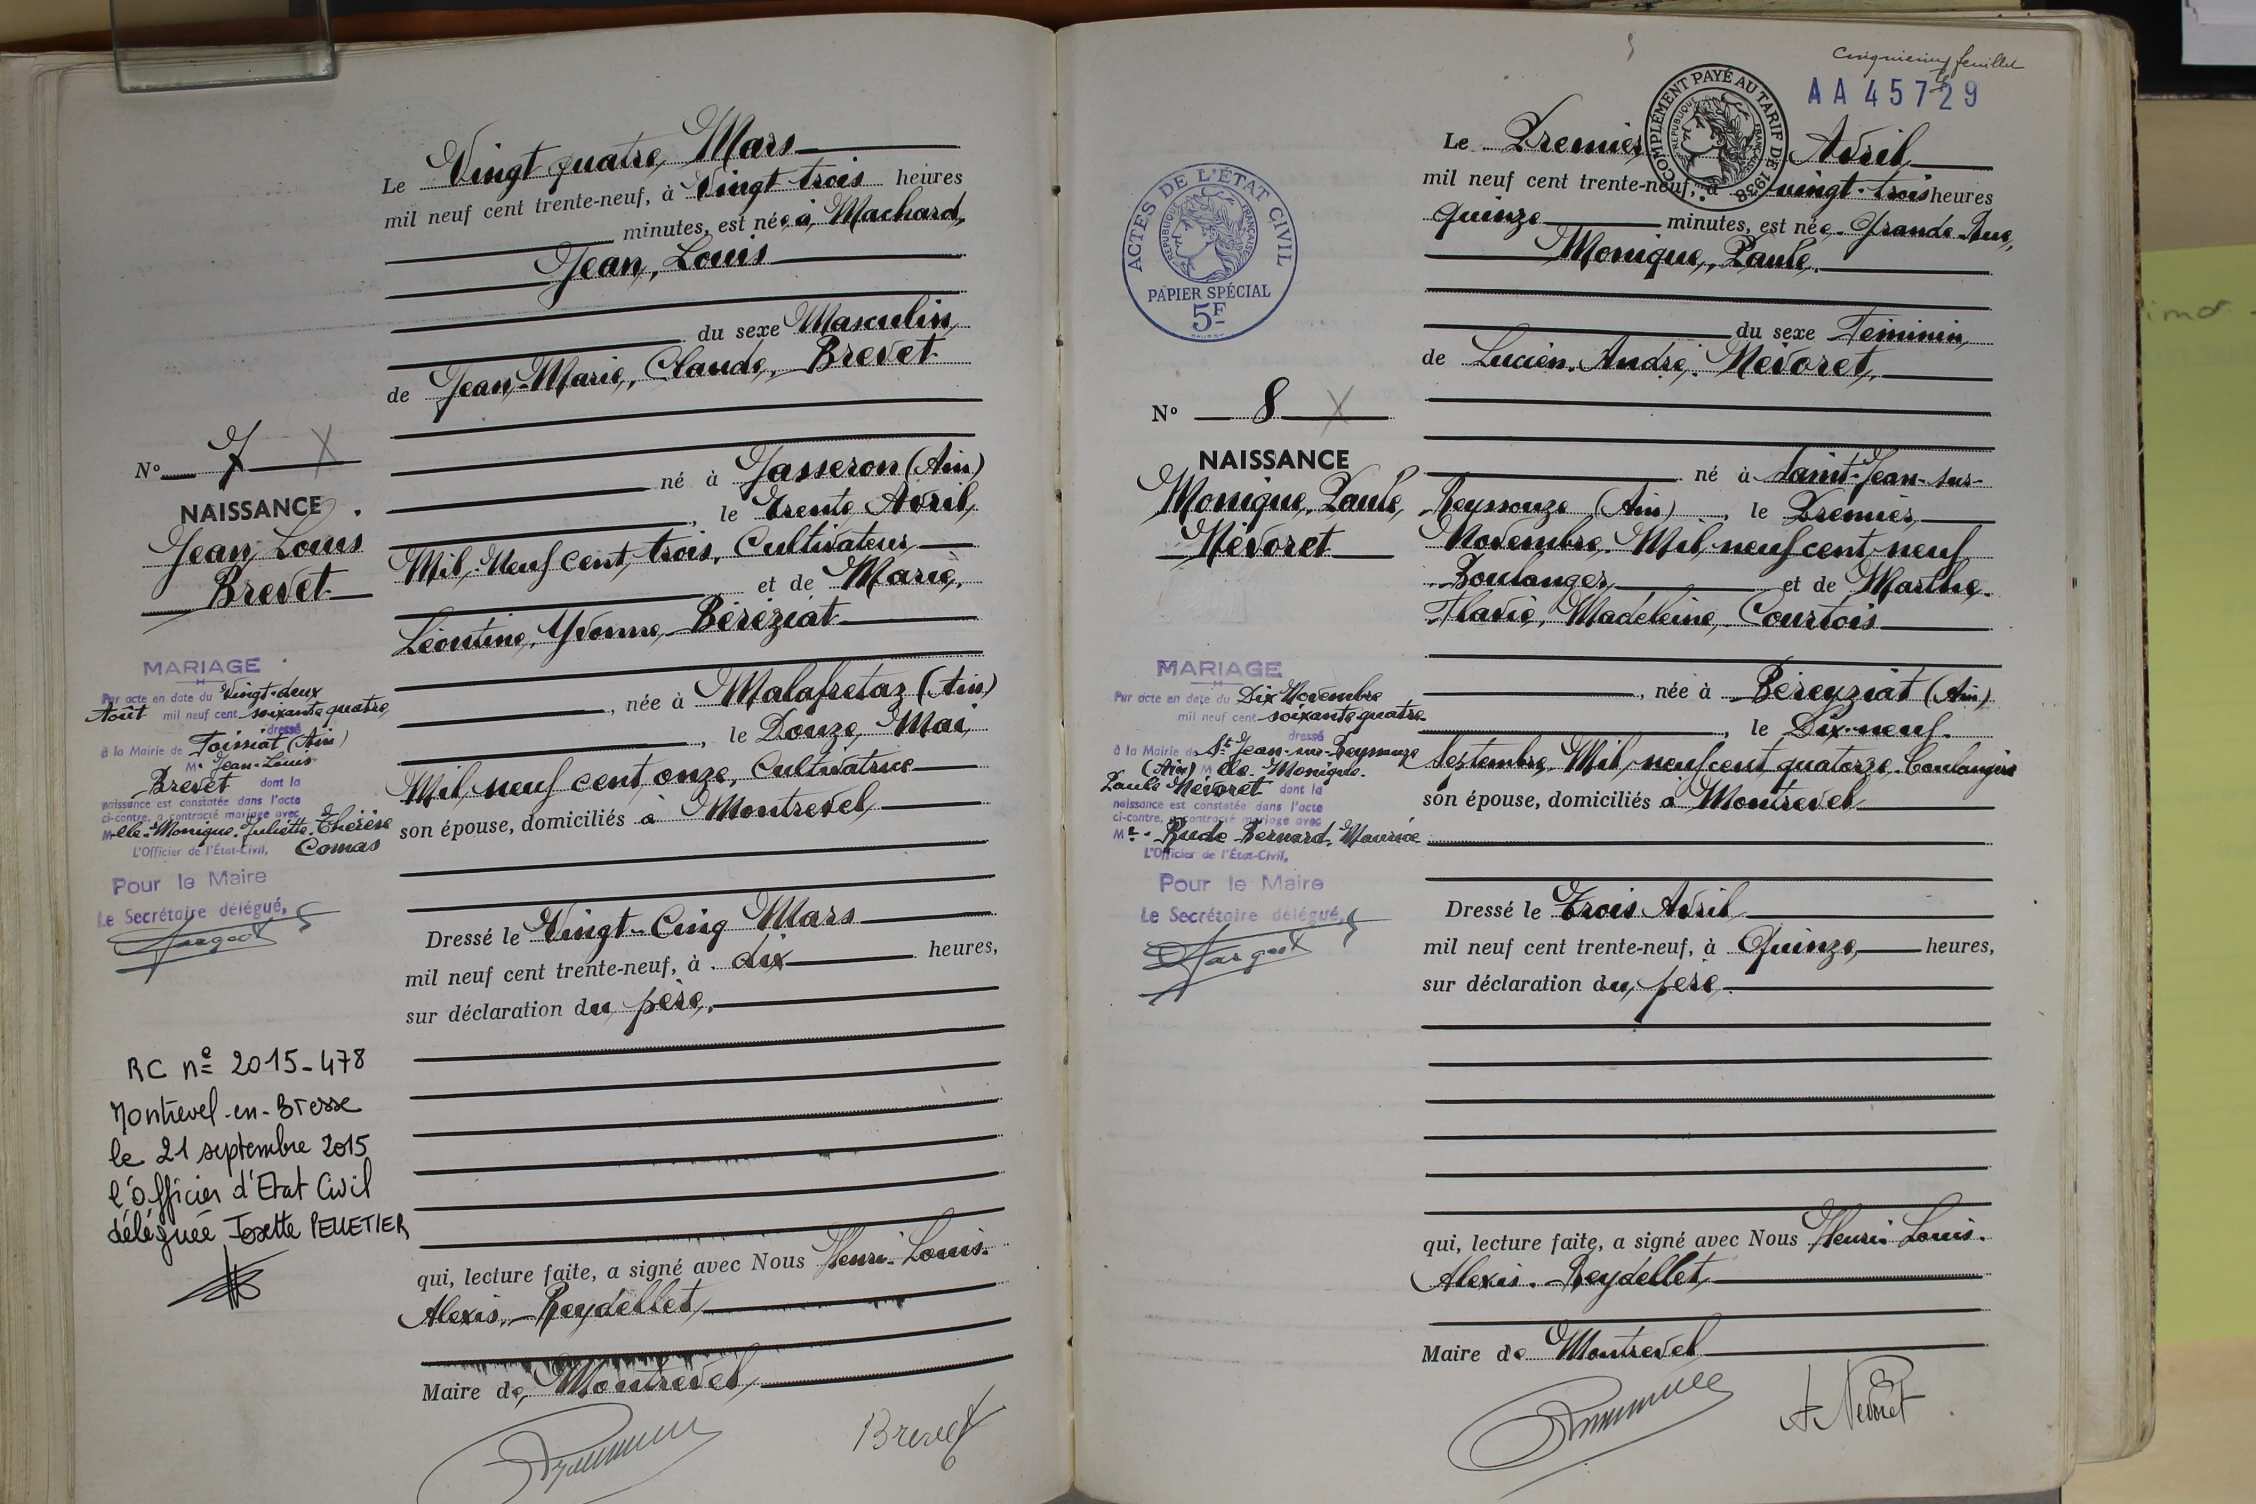 Le Vingt quatre Mars
mil neuf cent trente-neuf, à Vingt trois heures
minutes, est né à Machard,
Jean, Louis
du sexe Masculin
de Jean-Marie, Claude, Brevet
né à Jasseron (Ain)
, le Trente Avril
Mil Neuf cent trois, Cultivateur
et de Marie,
Léontine, Yvonne, Béréziat
, née à Malafretaz (Ain)
, le Douze Mai
Mil neuf cent onze, Cultivatrice
son épouse, domiciliés à Montrevel,
Dressé le Vingt-Cinq Mars
mil neuf cent trente-neuf, à dix heures,
sur déclaration du père,
qui, lecture faite, a signé avec Nous Henri. Louis.
Alexis. Reydellet,
Maire de Montrevel,
Brevet
N° 7 X
NAISSANCE
Jean, Louis
Brevet
MARIAGE
Par acte en date du Vingt-deux
Août mil neuf cent soixante quatre
dressé
à la Mairie de Foissiat (Ain)
Mr Jean-Louis
Brevet dont la
naissance est constatée dans l'acte
ci-contre, a contracté mariage avec
Melle Monique. Juliette. Thérèse
L'Officier de l'État-Civil, Comas
Pour le Maire
Le Secrétaire délégué,
RC n° 2015-478
Montrevel-en-Bresse
le 21 septembre 2015
l'Officier d'Etat Civil
déléguée Josette PELLETIER
Cinquième feuillet
AA 45729
COMPLÉMENT PAYÉ AU TARIF DE 1938
REPUBLIQUE FRANÇAISE
Le Premier Avril
mil neuf cent trente-neuf, à vingt-trois heures
quinze minutes, est née Grande Rue,
Monique, Paule,
du sexe Féminin,
de Lucien. André. Névoret,
né à Saint-Jean-sur-
Reyssouze (Ain) , le Premier
Novembre. Mil neuf cent neuf
Boulanger, et de Marthe.
Flavie, Madeleine, Courtois
, née à Béreyziat (Ain)
, le Dix-neuf
Septembre, Mil neuf cent quatorze. Boulangère
son épouse, domiciliés à Montrevel
Dressé le Trois Avril
mil neuf cent trente-neuf, à Quinze heures,
sur déclaration du père
qui, lecture faite, a signé avec Nous Henri. Louis.
Alexis. Reydellet,
Maire de Montrevel
Névoret
ACTES DE L'ÉTAT CIVIL
REPUBLIQUE FRANÇAISE
PAPIER SPÉCIAL
5F
N° 8 X
NAISSANCE
Monique, Paule,
Névoret
MARIAGE
Par acte en date du Dix Novembre
mil neuf cent soixante quatre
dressé
à la Mairie de St Jean-sur-Reyssouze
(Ain) Melle Monique.
Paule Névoret dont la
naissance est constatée dans l'acte
ci-contre, a contracté mariage avec
Mr. Rude Bernard. Maurice
L'Officier de l'État-Civil,
Pour le Maire
Le Secrétaire délégué,